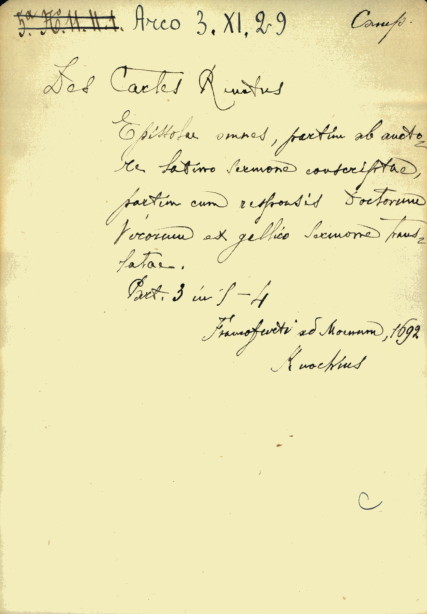 Arco 3. XI. 29 Camp.
Des Cartes Renatus
Epistolae omnes, partim ab aucto-
re latino sermone conscriptae,
partim cum responsis doctorum
Virorum ex gallico sermone trans-
latae.
Part. 3 in 1 - 4
Francofurti ad Moenum, 1692
Knochius
C